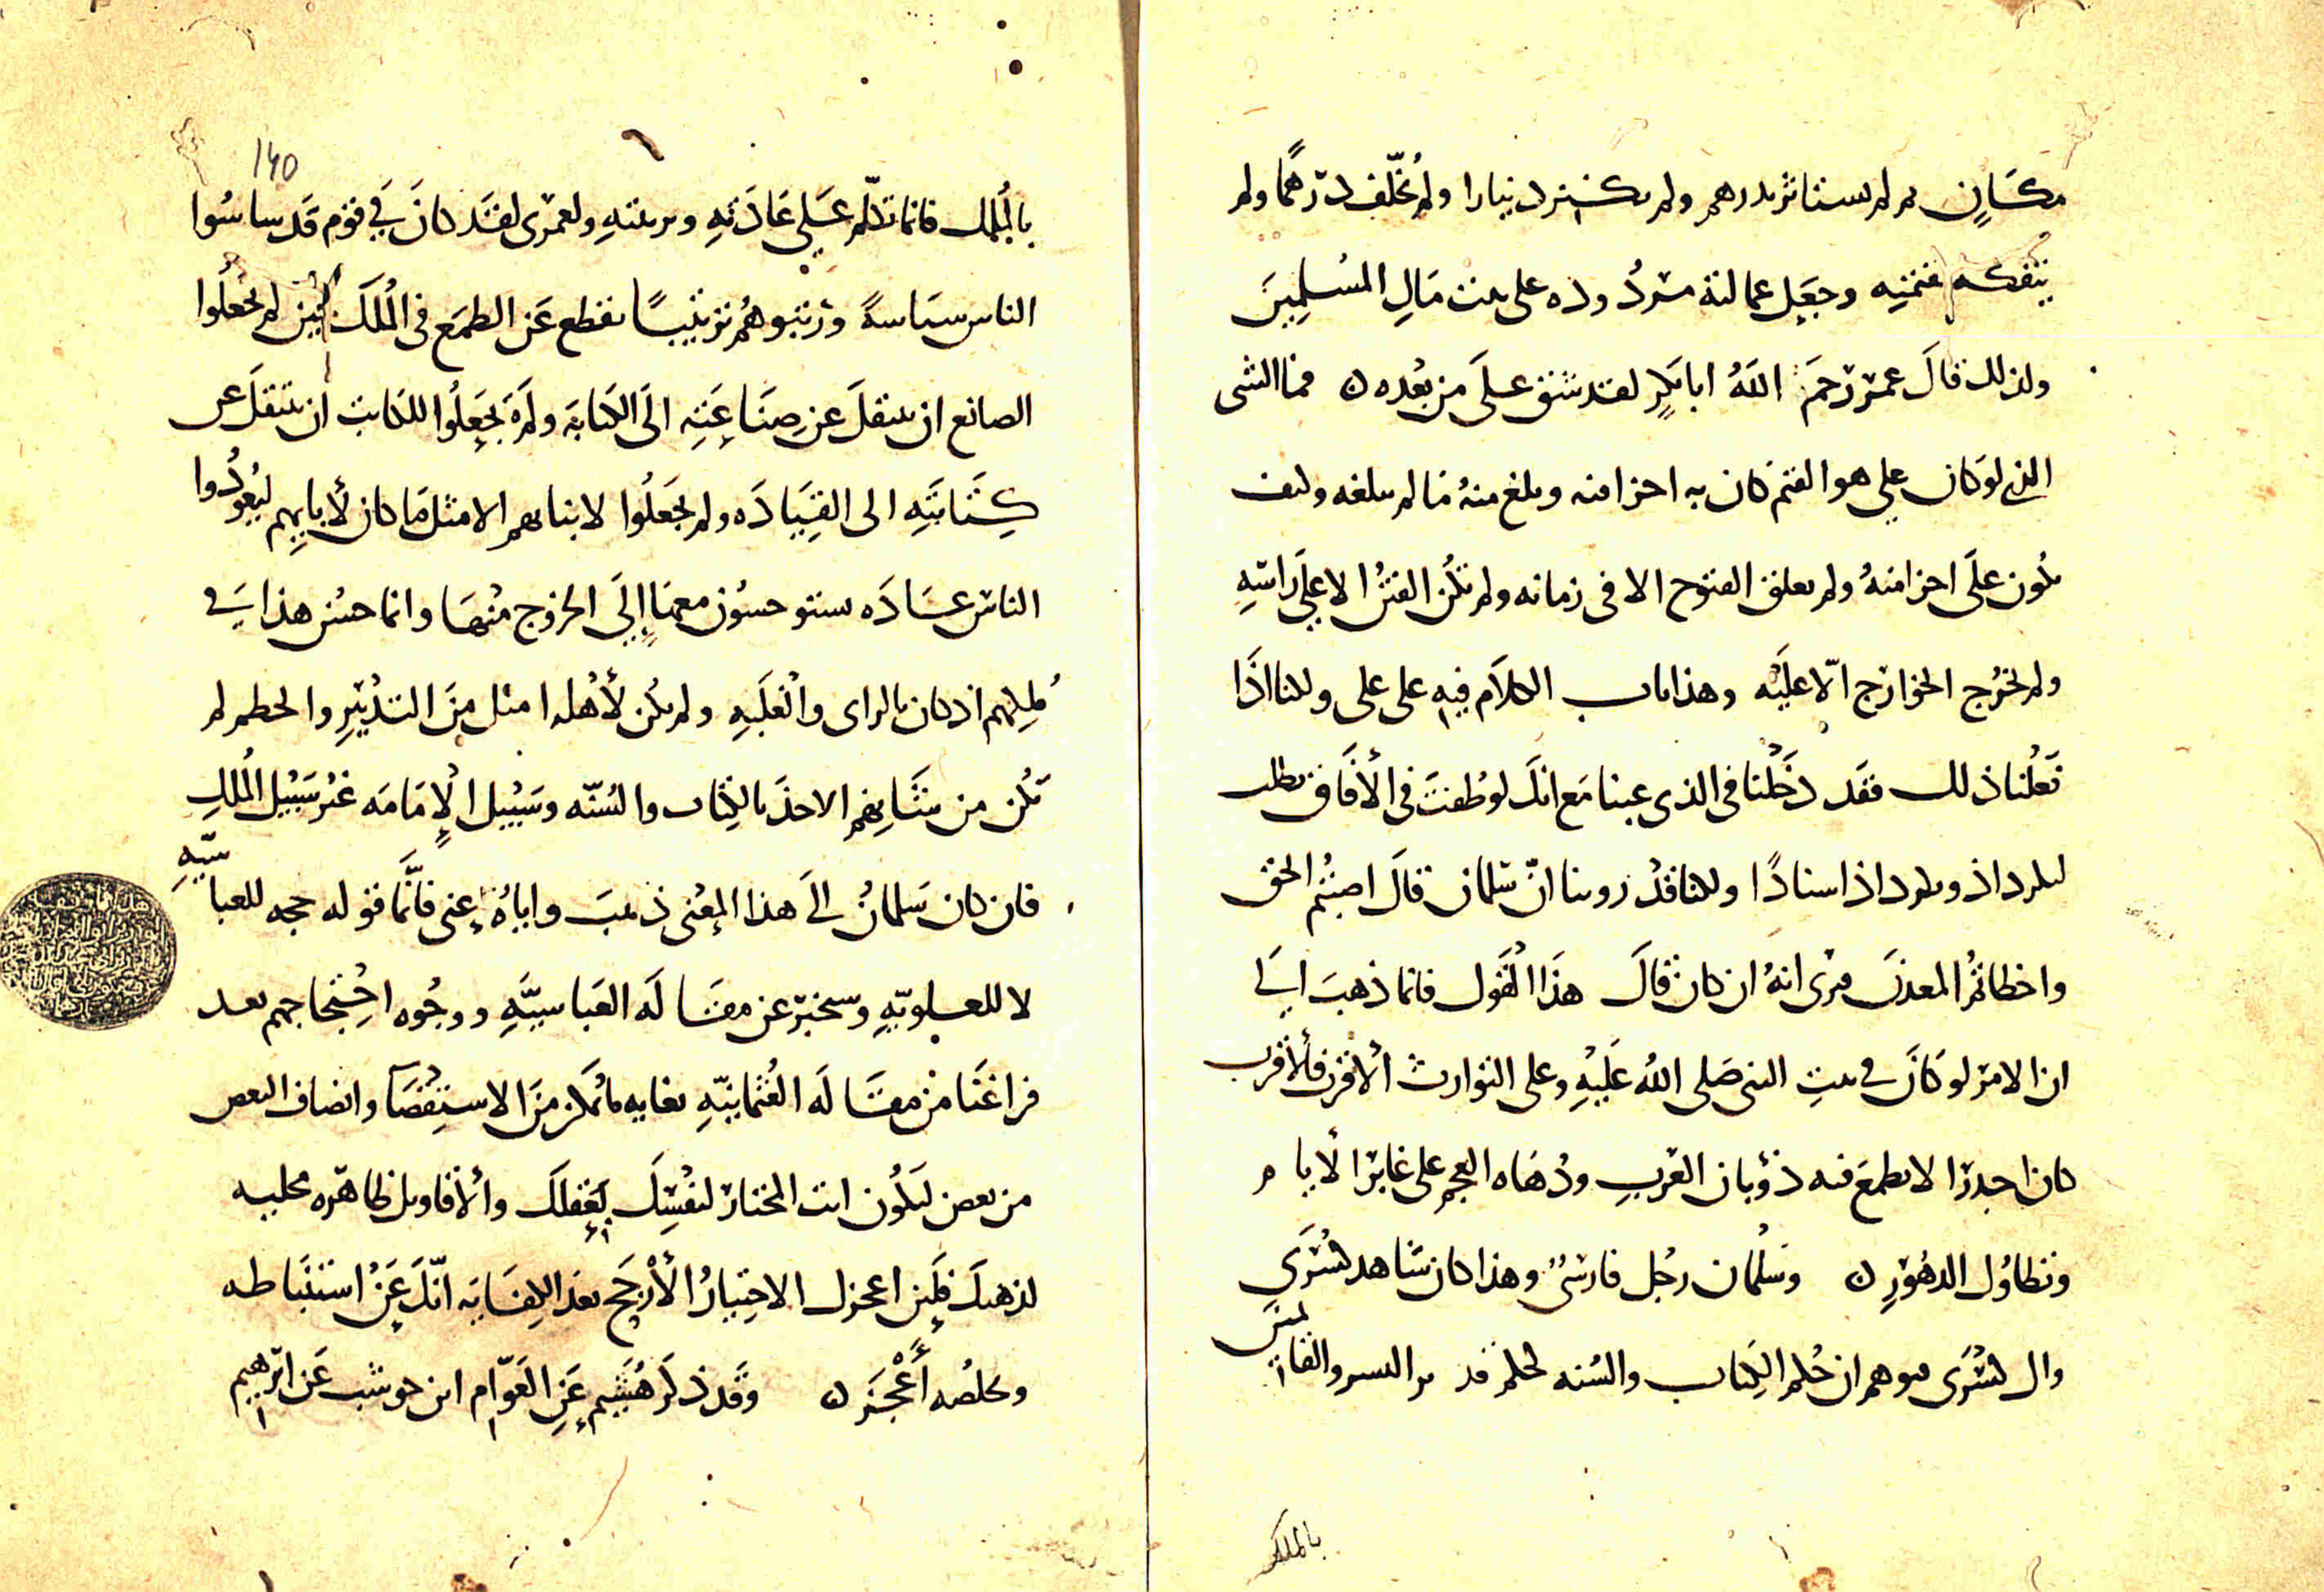 مكان ثم لم يستاثر بدرهم ولم يكتنز دينارا ولم يخلف درهما ولم
يتفكه وجعل عمالته مردوده على بيت مال المسلمين
ولذلك قال عمر رحم الله ابا بكر لقد شق على من بعده فما الشى
الذى لو كان على هو القيم كان به احزا منه وبلغ منه ما لم يبلغه وكيف
يكون على احزا منه ولم يغلق الفتوح الا فى زمانه ولم تكن الفتن الا على راسه
ولم تخرج الخوارج الا عليه وهذا باب الكلام فيه على على ولكنا اذا
فعلنا ذلك فقد دخلنا فى الذى عبنا مع انك لو طفت فى الافاق تطلب
لكرداذ ونكرداذ اسنادا ولكنا قد روينا ان سلمان قال اصبتم الحق
واخطاتم المعدن فنرى انه ان كان قال هذا القول فانما ذهب الى
ان الامر لو كان فى بيت النبى صلى الله عليه وعلى التوارث الاقرب فالاقرب
كان اجدر الا يطمع فيه ذؤبان العرب ودهاه العجم على غابر الايام
وتطاول الدهور وسلمان رجل فارسى وهذا كان شاهد كسرى
وال كسرى فتوهم ان حكم الكتاب والسنه كحكم تدبير الفرس والقايمين
بالملك
140
بالملك فانما تكلم على عادته وتربيته ولعمرى لقد كان فى قوم قد ساسوا
الناس سياسة ورتبوهم ترتيبا يقطع عن الطمع فى الملك لم يجعلوا
الصانع ان ينتقل عن صناعته الى الكتابه ولم يجعلوا للكاتب ان ينتقل عن
كتابته الى القياده ولم يجعلوا لابنايهم الا مثل ما كان لابايهم ليعودوا
الناس عاده يستوحشون معها الى الخروج منها وانما حسن هذا فى
ملكهم اذ كان بالراى والغلبه ولم يكن لاهله امثل من التدبير والحطم لم
تكن من شانهم الاخذ بالكتاب والسنه وسبيل الامامه غير سبيل الملك
فان كان سلمان الى هذا المعنى ذهب واياه عنى فانما قوله حجه للعباسيه
لا للعلويه وسنخبر عن مقاله العباسيه ووجوه احتجاجهم بعد
فراغنا من مقاله العثمانيه بغايه ما يمكن من الاستقصا وانصاف البعض
من بعض لتكون انت المختار لنفسك بعقلك والاقاويل ظاهره مجليه
لذهنك فلين اعجزك الاختيار الارجح بعد الكفايه انك عن استنباطه
وتخلصه اعجز وقد ذكر هشيم عن العوام ابن حوشب عن ابرهيم